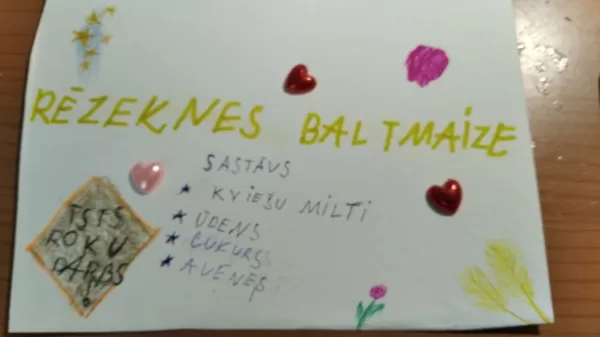 RĒZEKNES BALTMAIZE
SASTĀVS
* KVIEŠU MILTI
* ŪDENS
* CUKURS
* AVENES
ĪSTS
ROKU
DARBS
!